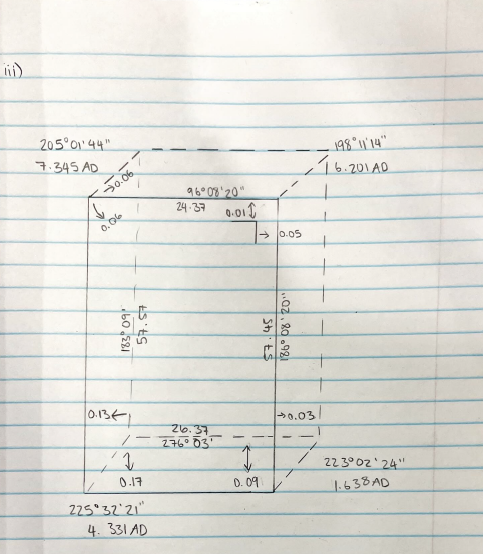 iii)
205°01'44"
7.345 AD
198°11'14"
6.201 AD
→0.06
96°08'20"
24.37
0.01↕
0.06
→ 0.05
183°09'
57.45
57.45
186°08'20"
0.13←
→0.03
26.37
276°03'
0.17
0.09
223°02'24"
1.638 AD
225°32'21"
4.331 AD